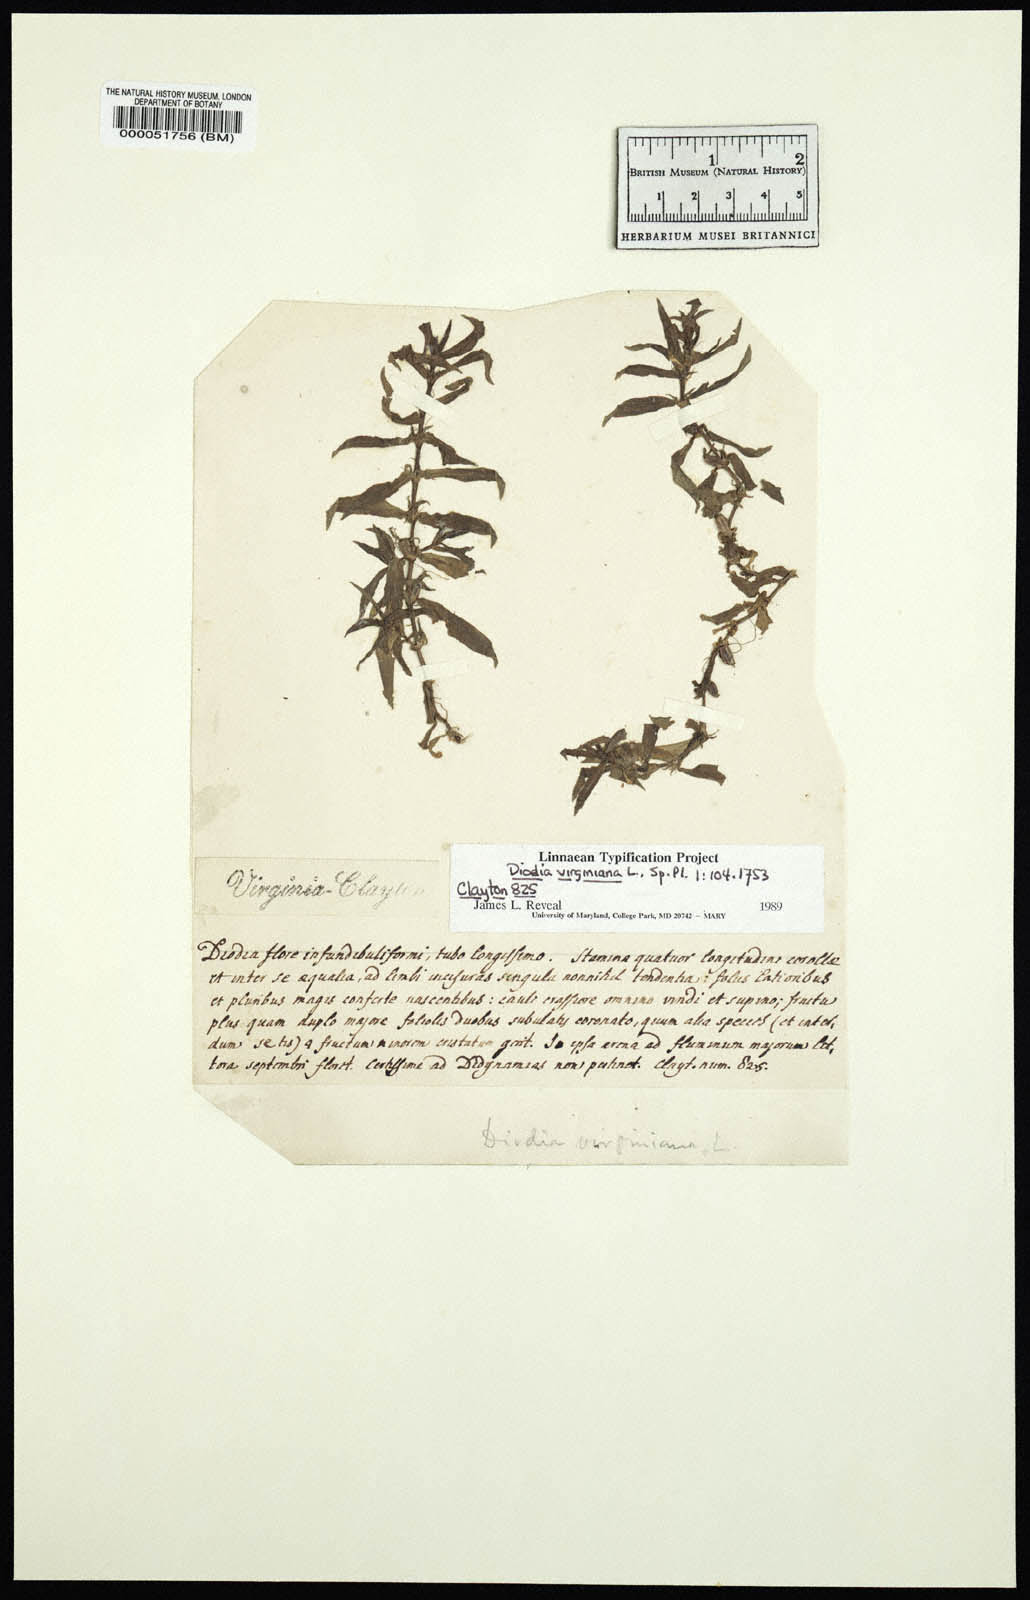 THE NATURAL HISTORY MUSEUM, LONDON
DEPARTMENT OF BOTANY
000051756 (BM)
1 2
BRITISH MUSEUM (NATURAL HISTORY)
1 2 3 4 5
HERBARIUM MUSEI BRITANNICI
Virginia-Clayton
Linnaean Typification Project
Diodia virginiana L., Sp. Pl. 1:104.1753
Clayton 825
James L. Reveal 1989
University of Maryland, College Park, MD 20742 – MARY
Diodia flore infundibuliformi, tubo longissimo. Stamina quatuor longitudine corollæ
et inter se æqualia, ad limbi incisuras singula nonnihil tendentia: foliis latioribus
et pluribus magis conferte nascentibus: caule crassiore omnino viridi et supino; fructu
plus quam duplo majore foliolis duobus subulatis coronato, quum alia species (et inter,
dum se tis) 4 fructum minorem cristatum gerit. In ipsa arena ad fluminum majorum lit,
tora septembri floret. Certissime ad Didynamias non pertinet. Clayt. num. 825.
Diodia virginiana, L.